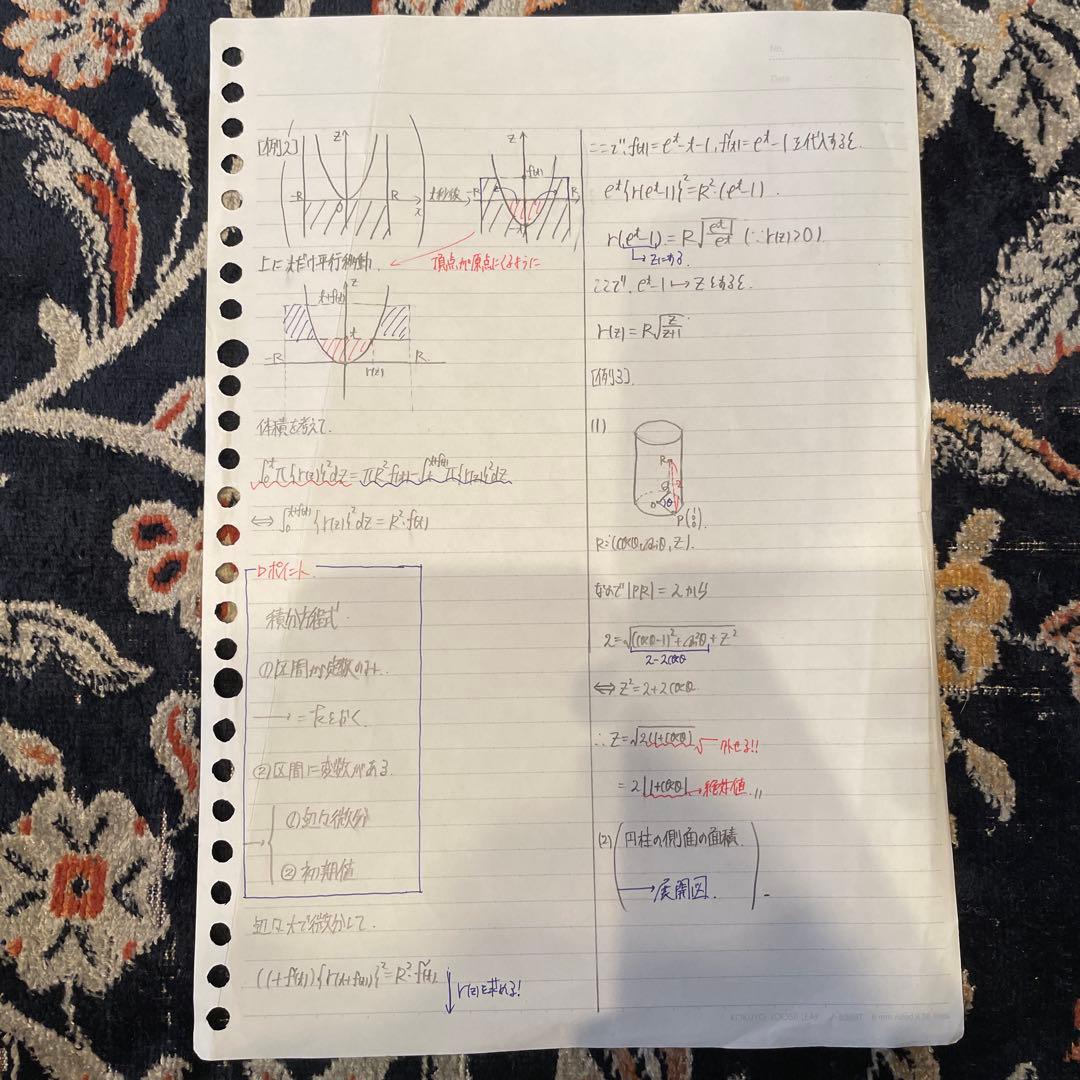 No.
Date
[例2]
z
-R
O
R
x
t秒後
z
f(t)
-R
R
-t
上にtだけ平行移動.
頂点が原点にくるように
t+f(t)
z
t
-R
R
r(z)
体積を考えて.
∫₀ᵗπ{r(z)}²dz=πR²f(t)-∫ₜᵗ⁺ᶠ⁽ᵗ⁾π{r(z)}²dz
⇔∫₀ᵗ⁺ᶠ⁽ᵗ⁾{r(z)}²dz=R²·f(t)
ポイント
積分方程式
①区間が定数のみ
→ =kとおく.
②区間に変数がある.
→
①両辺微分
②初期値
両辺tで微分して.
(1+f'(t)){r(t+f(t))}²=R²·f'(t)
↓r(z)を求める!
ここで、f(t)=eᵗ-t-1, f'(t)=eᵗ-1を代入すると.
eᵗ{r(eᵗ-1)}²=R²·(eᵗ-1)
(∵r(z)≧0)
→zにする.
ここで、eᵗ-1↦zとすると.
r(z)=R√(z/(z+1))
[例3].
(1)
R
2
Q
O
θ
P(1 0 0).
R:(cosθ, sinθ, z).
なので|PR|=2から
2=√((cosθ-1)²+sin²θ+z²)
2-2cosθ
⇔z²=2+2cosθ
∴z=√(2(1+cosθ)) √外せる!!
=2|1+cosθ|→絶対値.,,
(2)
円柱の側面の面積.
→展開図.